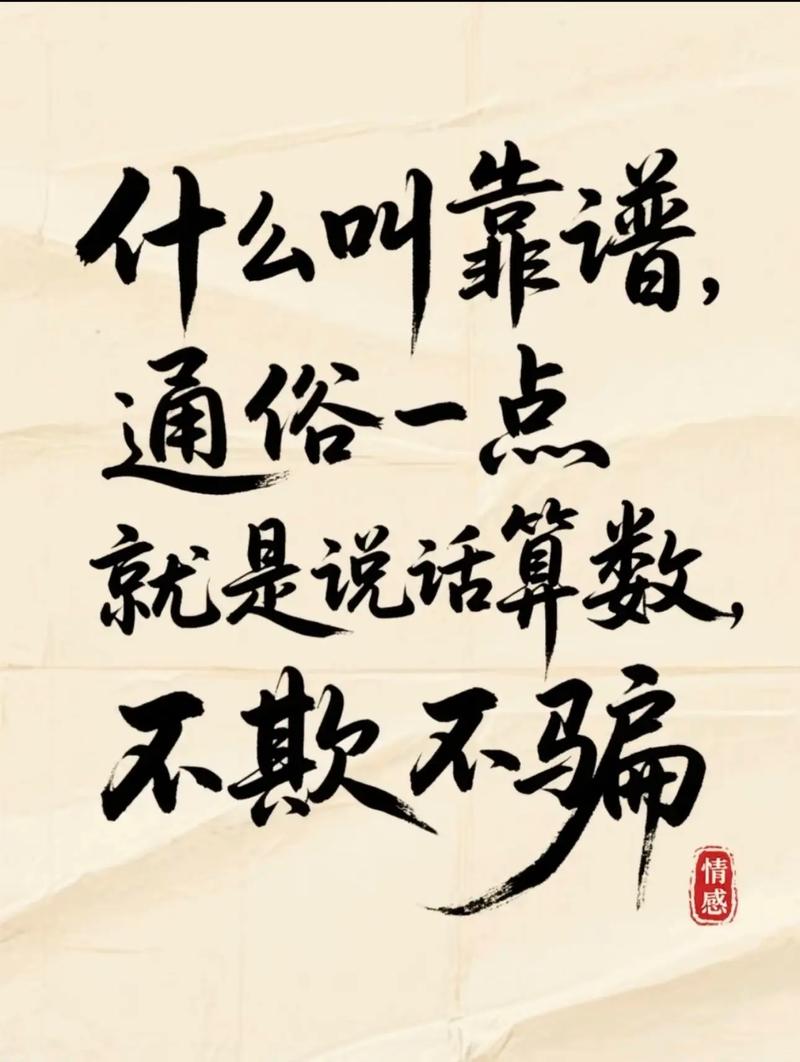 什么叫靠谱，
通俗一点
就是说话算数，
不欺不骗
情感